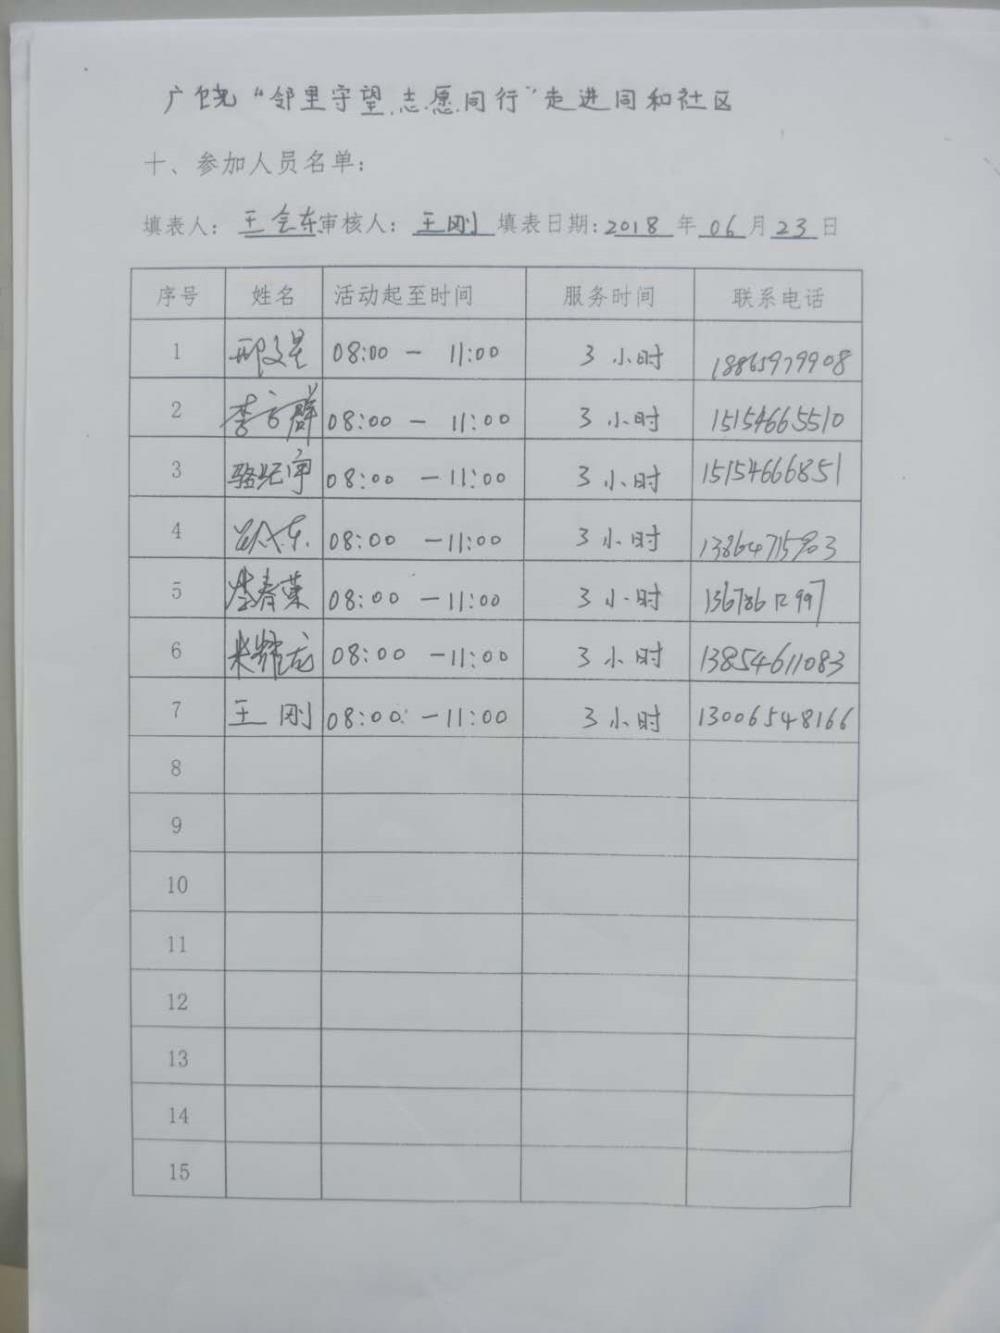 广饶“邻里守望.志愿同行”走进同和社区
十、参加人员名单：
填表人：王会东 审核人：王刚 填表日期:2018年06月23日
序号 姓名 活动起至时间 服务时间 联系电话
1 邢文星 08:00 — 11:00 3小时 18865979908
2 李方群 08:00 — 11:00 3小时 15154665510
3 骆纪宇 08:00 — 11:00 3小时 15154666851
4 08:00 — 11:00 3小时 13864715903
5 李春荣 08:00 — 11:00 3小时
6 米耀龙 08:00 — 11:00 3小时 13854611083
7 王刚 08:00 — 11:00 3小时 13006548166
8
9
10
11
12
13
14
15